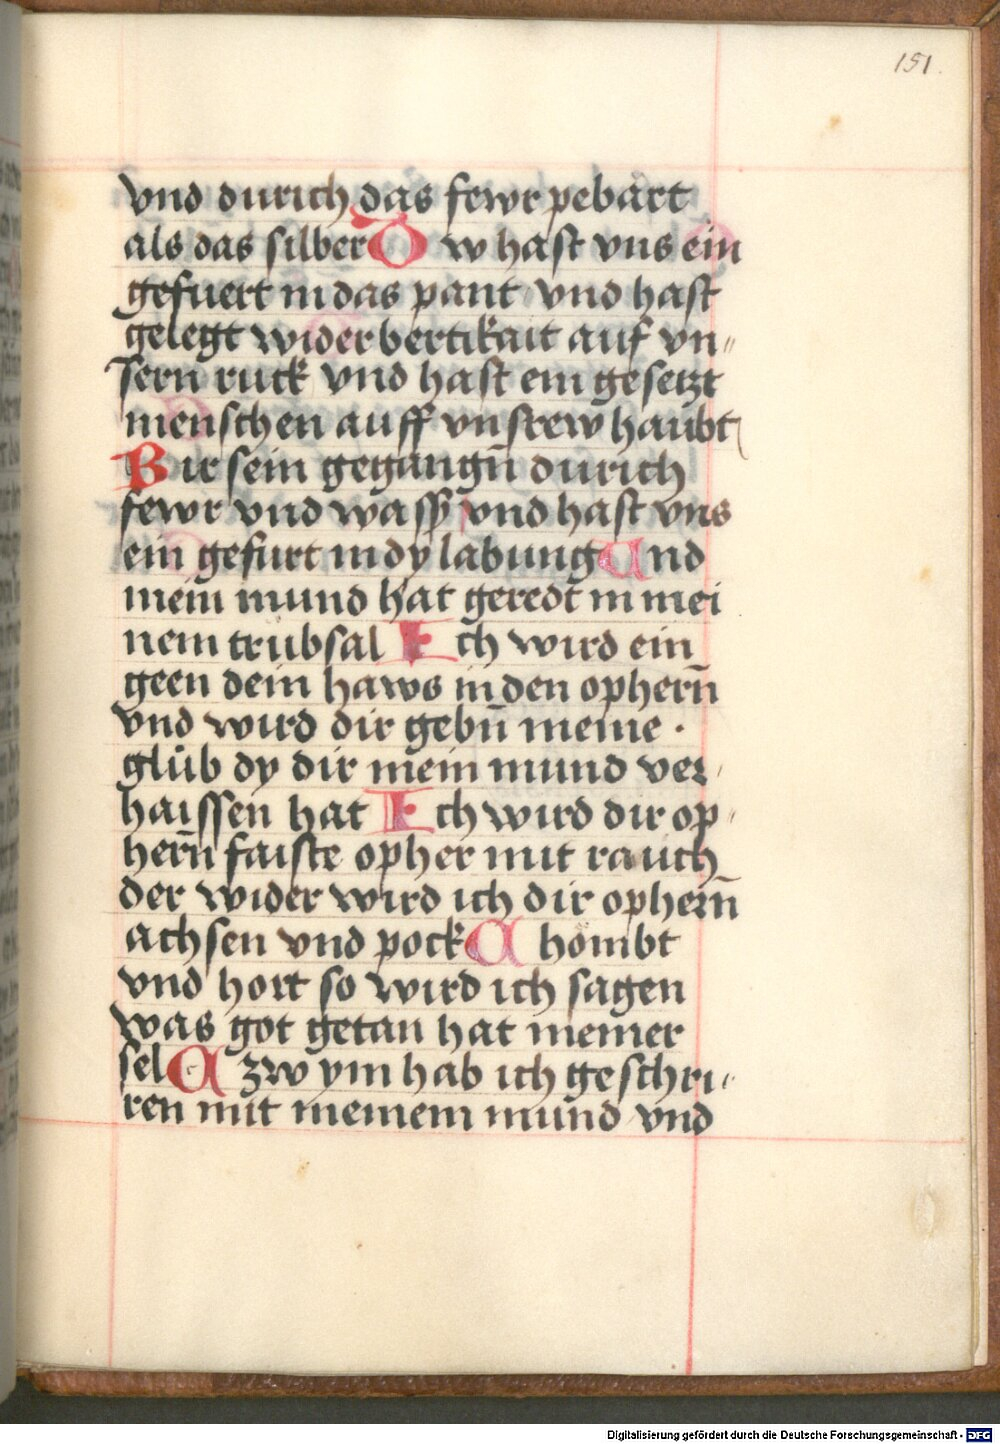 151.
vnd durich das fewr pebart
als das silber Dw hast vns ein
gefuert in das pant vnd hast
gelegt widerbertikait auf vn„
sern ruck vnd hast ein gesetzt
menschen auff vnsrew haubt
Bir sein gegangn̄ durich
fewr vnd wass vnd hast vns
ein gefurt in dy labung Vnd
mein mund hat geredt in mei
nem trubsal Ich wird ein
geen dein haws in den ophern̄
vnd wird dir gebn̄ meine ·
glůb dy dir mein mund ver„
haissen hat Ich wird dir op„
hern̄ faiste opher mit rauch
der wider wird ich dir ophern̄
achsen vnd pock Chömbt
vnd hört so wird ich sagen
was got getan hat meiner
sel Czw ym hab ich geschri„
ren mit meinem mund vnd
Digitalisierung gefördert durch die Deutsche Forschungsgemeinschaft - DFG